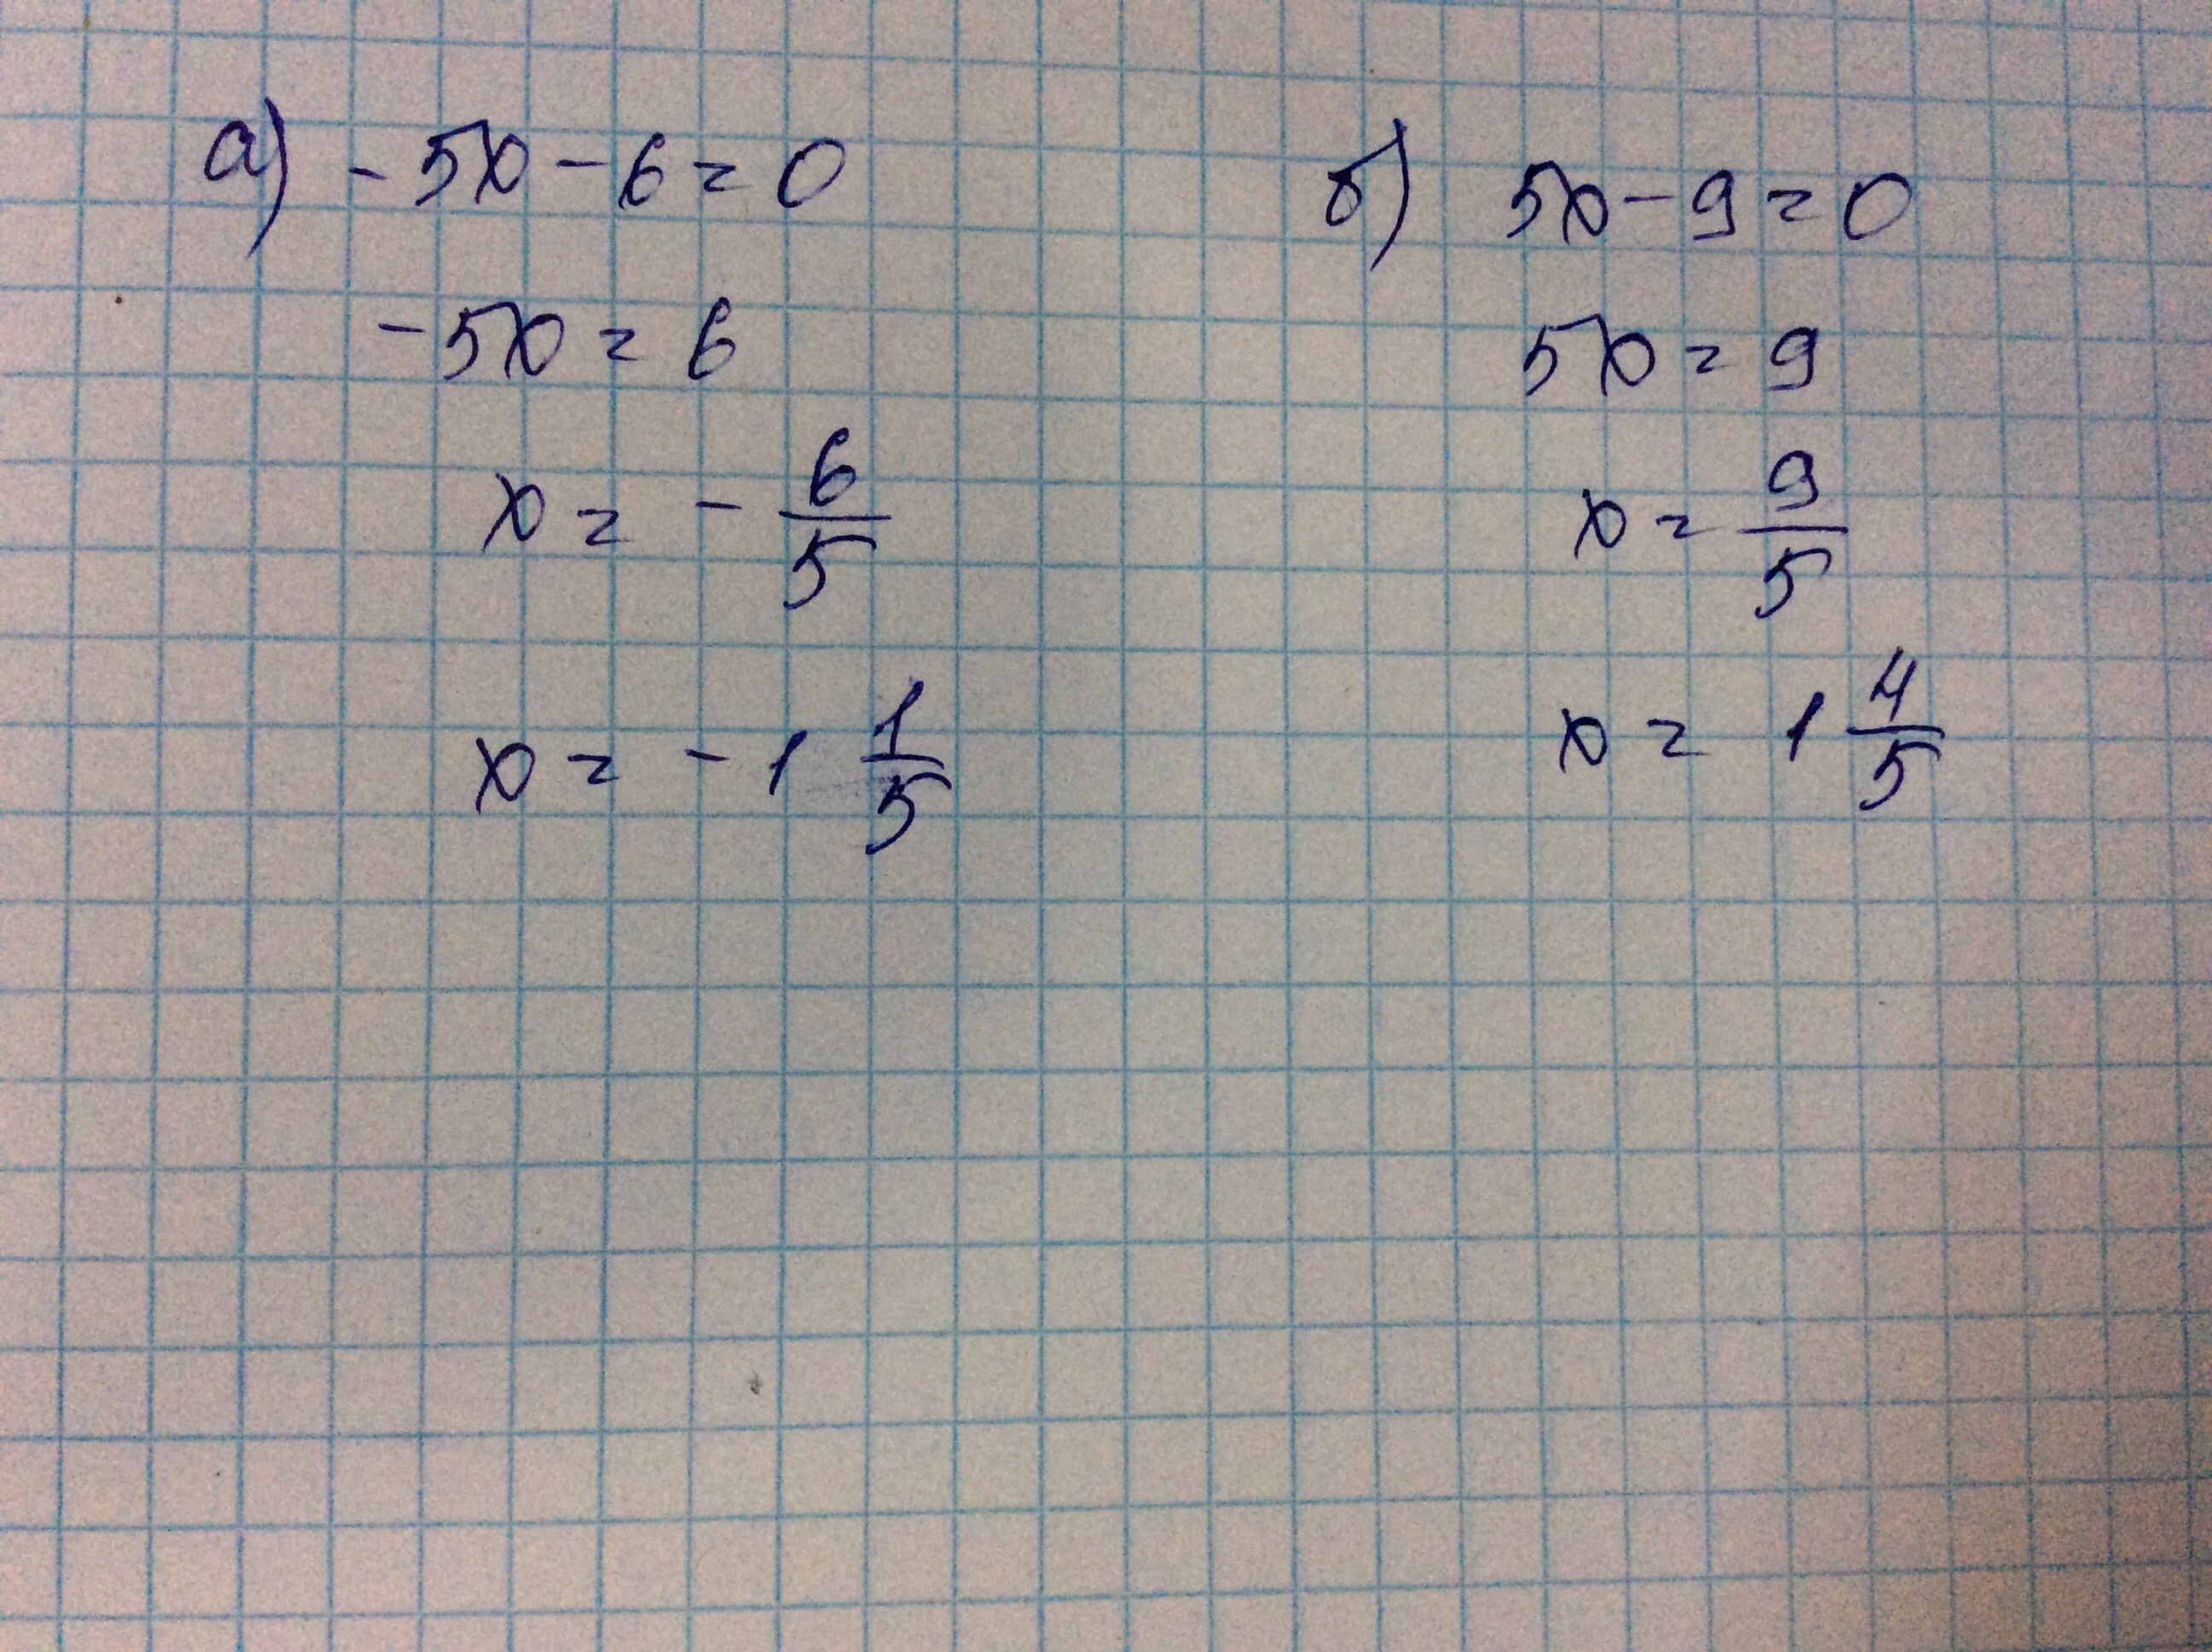 а) -5x-6=0
-5x=6
x= - 6/5
x= -1 1/5
б) 5x-9=0
5x=9
x= 9/5
x= 1 4/5